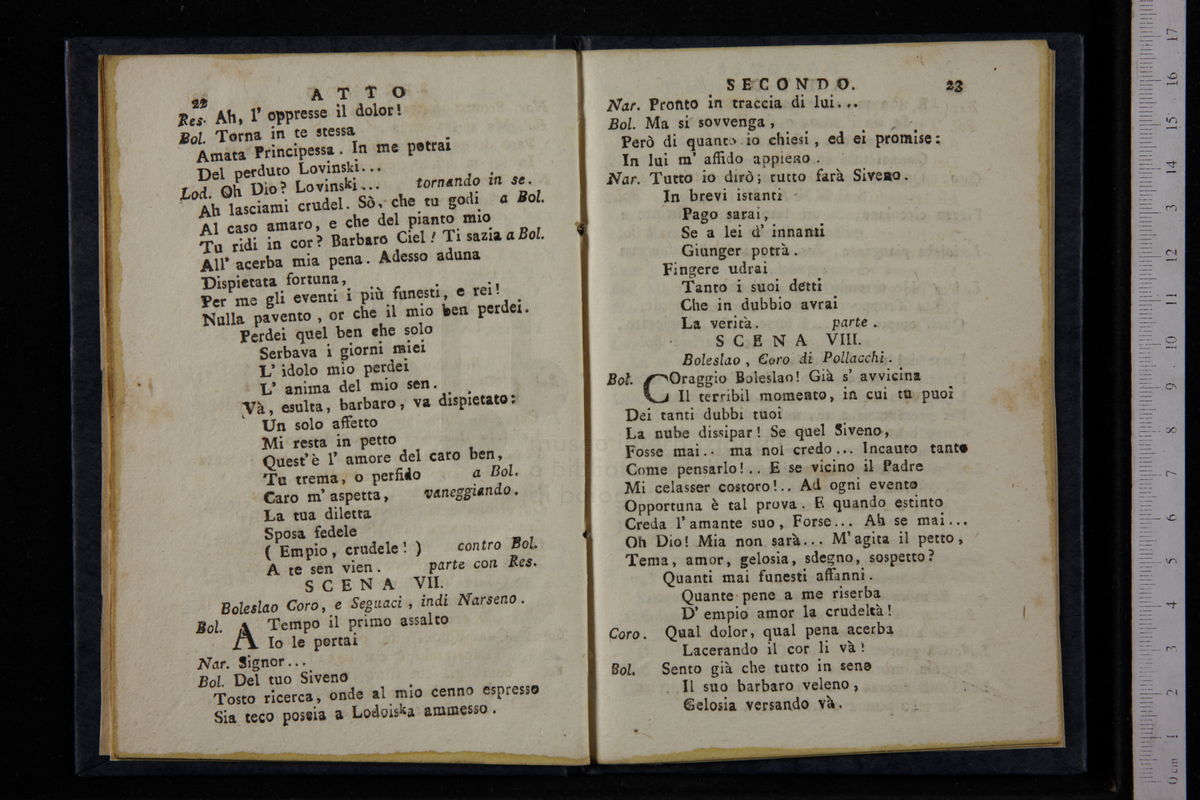 22 ATTO
Res. Ah, l' oppresse il dolor!
Bol. Torna in te stessa
Amata Principessa. In me potrai
Del perduto Lovinski...
Lod. Oh Dio? Lovinski... tornando in se.
Ah lasciami crudel. Sò, che tu godi a Bol.
Al caso amaro, e che del pianto mio
Tu ridi in cor? Barbaro Ciel! Ti sazia a Bol.
All' acerba mia pena. Adesso aduna
Dispietata fortuna,
Per me gli eventi i più funesti, e rei!
Nulla pavento, or che il mio ben perdei.
Perdei quel ben che solo
Serbava i giorni miei
L' idolo mio perdei
L' anima del mio sen.
Và, esulta, barbaro, va dispietato:
Un solo affetto
Mi resta in petto
Quest' è l' amore del caro ben,
Tu trema, o perfido a Bol.
Caro m' aspetta, vaneggiando.
La tua diletta
Sposa fedele
( Empio, crudele! ) contro Bol.
A te sen vien. parte con Res.
SCENA VII.
Boleslao Coro, e Seguaci, indi Narseno.
Bol. A Tempo il primo assalto
Io le portai
Nar. Signor...
Bol. Del tuo Siveno
Tosto ricerca, onde al mio cenno espresso
Sia teco possia a Lodoiska ammesso.
SECONDO. 23
Nar. Pronto in traccia di lui...
Bol. Ma si sovvenga,
Però di quanto io chiesi, ed ei promise:
In lui m' affido appieno.
Nar. Tutto io dirò; tutto farà Siveno.
In brevi istanti
Pago sarai,
Se a lei d' innanti
Giunger potrà.
Fingere udrai
Tanto i suoi detti
Che in dubbio avrai
La verità. parte.
SCENA VIII.
Boleslao, Coro di Pollacchi.
Bol. COraggio Boleslao! Già s' avvicina
Il terribil momento, in cui tu puoi
Dei tanti dubbi tuoi
La nube dissipar! Se quel Siveno,
Fosse mai.. ma nol credo... Incauto tanto
Come pensarlo!.. E se vicino il Padre
Mi celasser costoro!.. Ad ogni evento
Opportuna è tal prova. E quando estinto
Creda l' amante suo, Forse... Ah se mai...
Oh Dio! Mia non sarà... M' agita il petto,
Tema, amor, gelosia, sdegno, sospetto?
Quanti mai funesti affanni.
Quante pene a me riserba
D' empio amor la crudeltà!
Coro. Qual dolor, qual pena acerba
Lacerando il cor li và!
Bol. Sento già che tutto in seno
Il suo barbaro veleno,
Gelosia versando và.